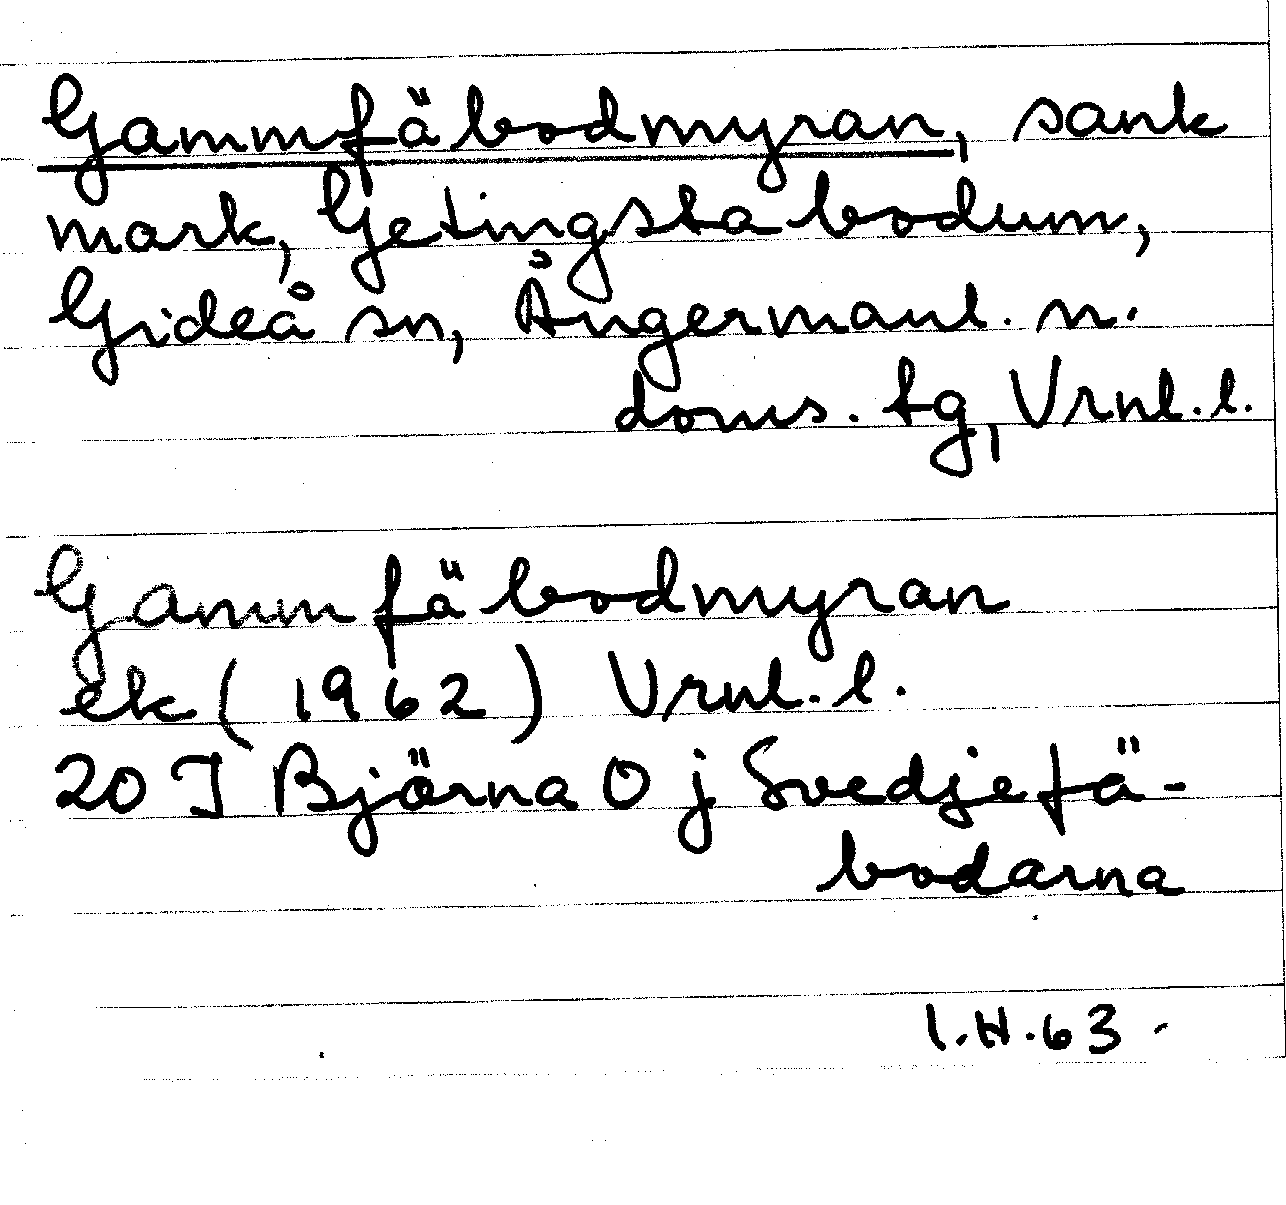 Gammfäbodmyran, sank
mark, Getingstabodum,
Gideå sn, Ångermanl. n.
doms. tg, Vrnl. l.
Gammfäbodmyran
ek (1962) Vrnl. l.
20 J Björna O j Svedjefä-
bodarna
I.H.63